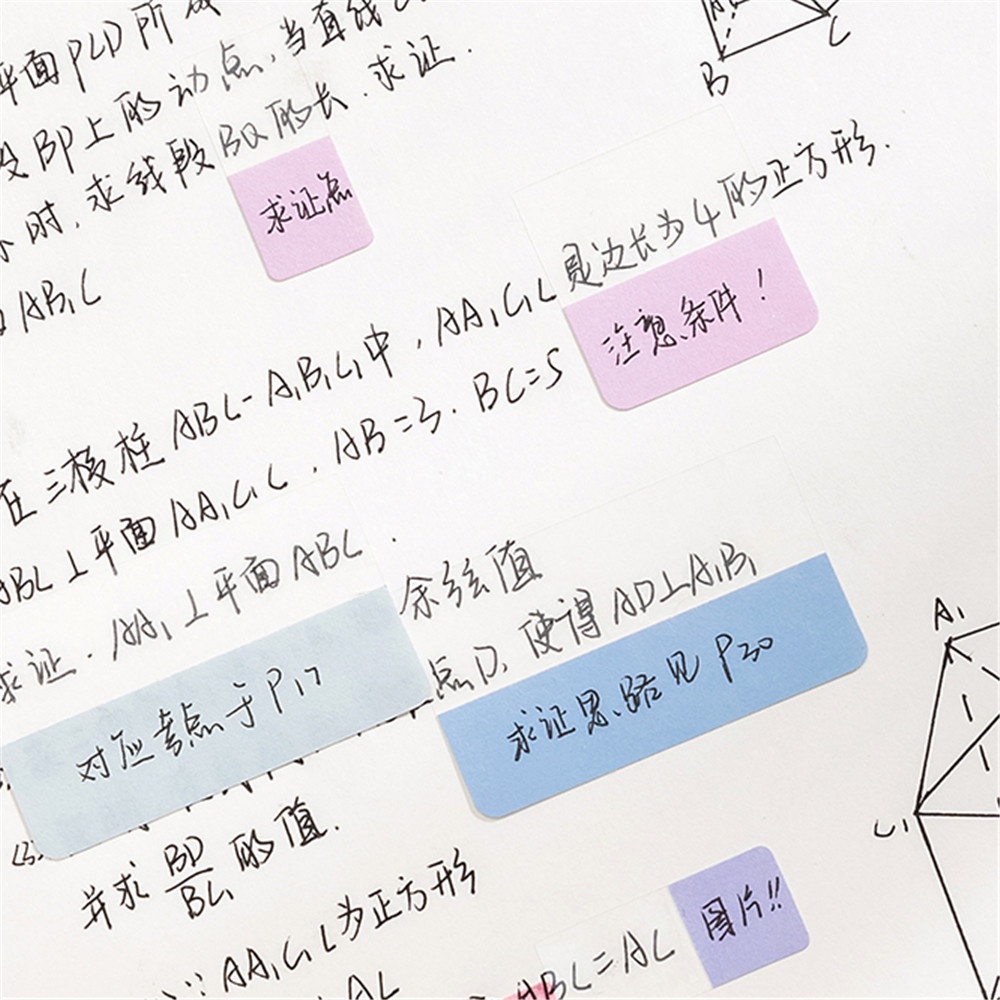 平面PCD所成
段BP上的动点,当直线
时,求线段BQ的长.求证.
求证点
B
C
AB₁C
是边长为4的正方形.
注意条件!
在三棱柱ABC-A₁B₁C₁中,AA₁C₁C
ABC⊥平面AA₁C₁C,AB=3.BC=5
求证.AA₁⊥平面ABC.
余弦值
点D,使得AD⊥A₁B₁
对应考点于P17
求证思路见P30
A₁
C₁
并求BD/BC₁的值.
∵AA₁C₁C为正方形
图片!!
ABC=AC
AC